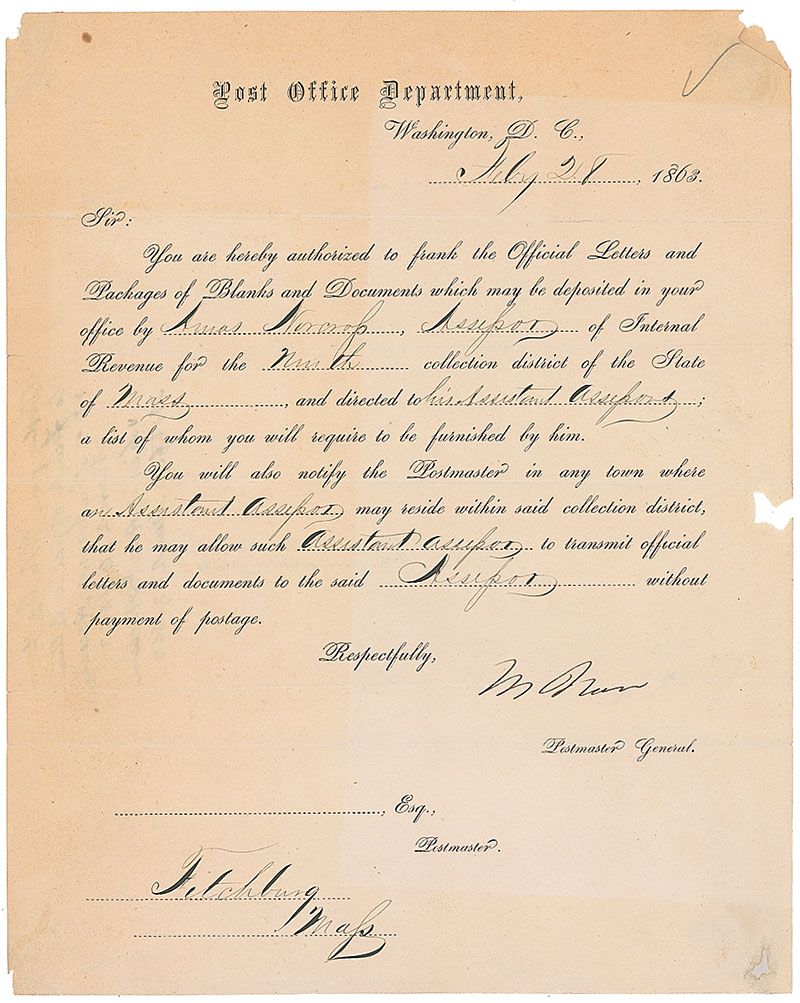 Post Office Department,
Washington, D. C.,
Feby 28, 1863.
Sir:
You are hereby authorized to frank the Official Letters and
Packages of Blanks and Documents which may be deposited in your
office by Amos Norcross, Assessor of Internal
Revenue for the Ninth collection district of the State
of Mass, and directed to his Assistant Assessors;
a list of whom you will require to be furnished by him.
You will also notify the Postmaster in any town where
an Assistant Assessor may reside within said collection district,
that he may allow such Assistant Assessor to transmit official
letters and documents to the said Assessor without
payment of postage.
Respectfully,
M Blair
Postmaster General.
, Esq.,
Postmaster.
Fitchburg
Mass